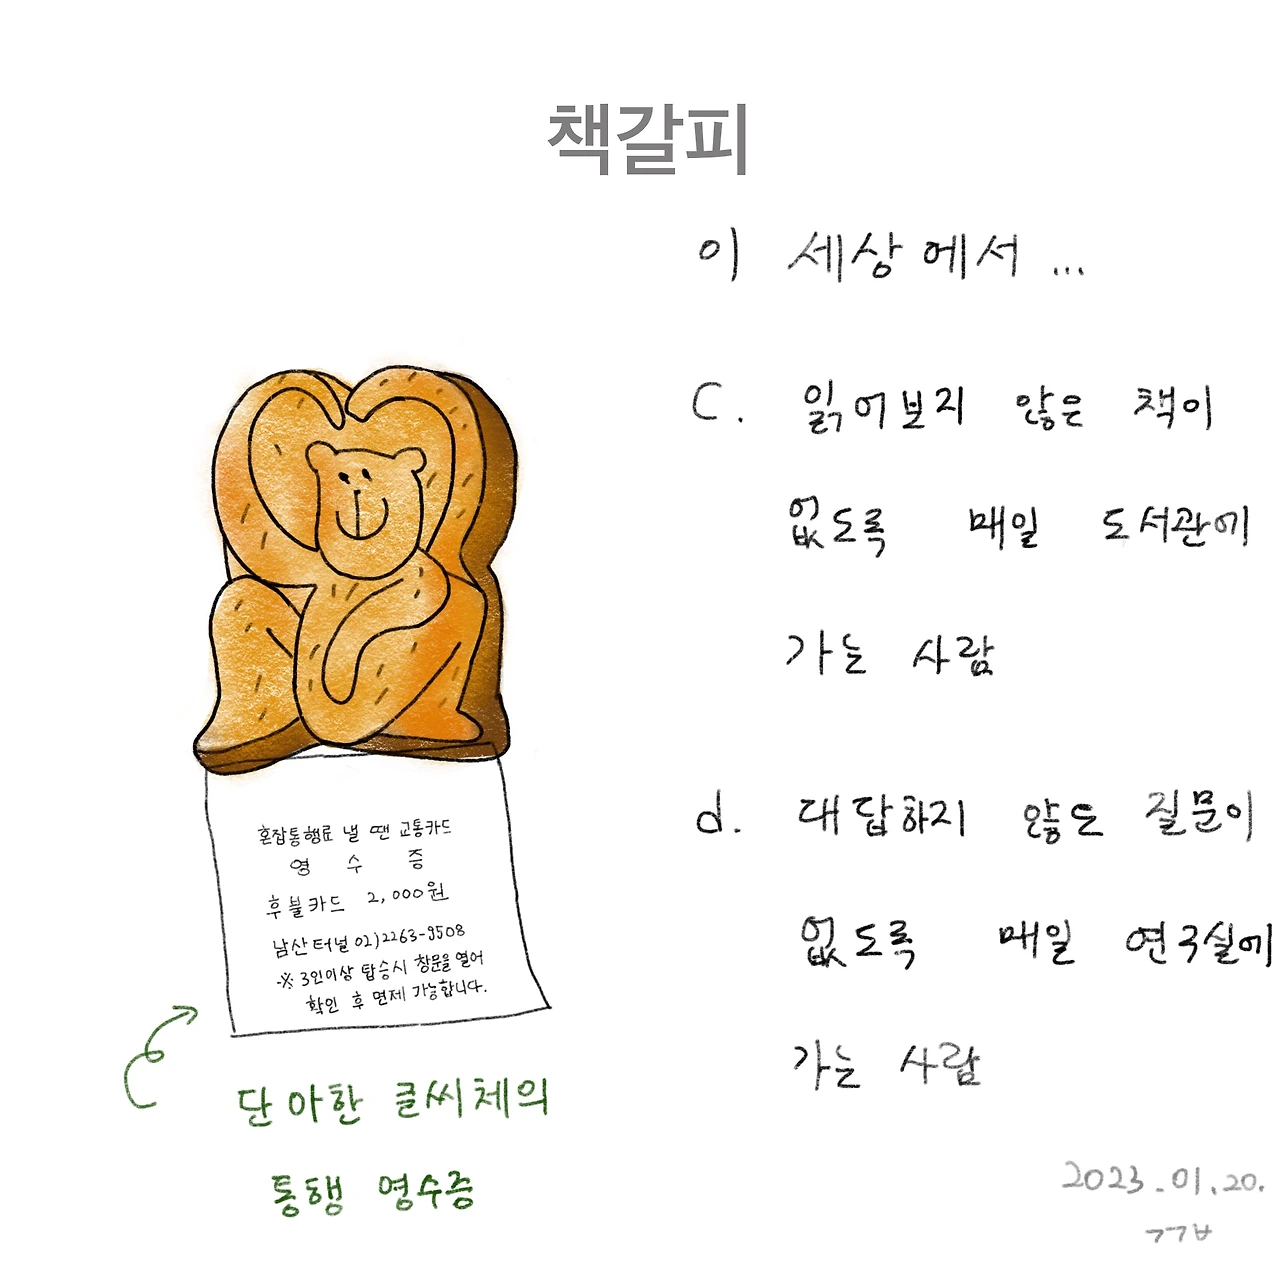 책갈피
이 세상에서 ...
C. 읽어보지 않은 책이
없도록 매일 도서관에
가는 사람
d. 대답하지 않은 질문이
없도록 매일 연구실에
가는 사람
혼잡통행료 낼 땐 교통카드
영 수 증
후불카드 2,000원
남산터널 02)2263-9508
※ 3인이상 탑승시 창문을 열어
확인 후 면제 가능합니다.
단아한 글씨체의
통행 영수증
2023.01.20.
ㄱㄱㅂ